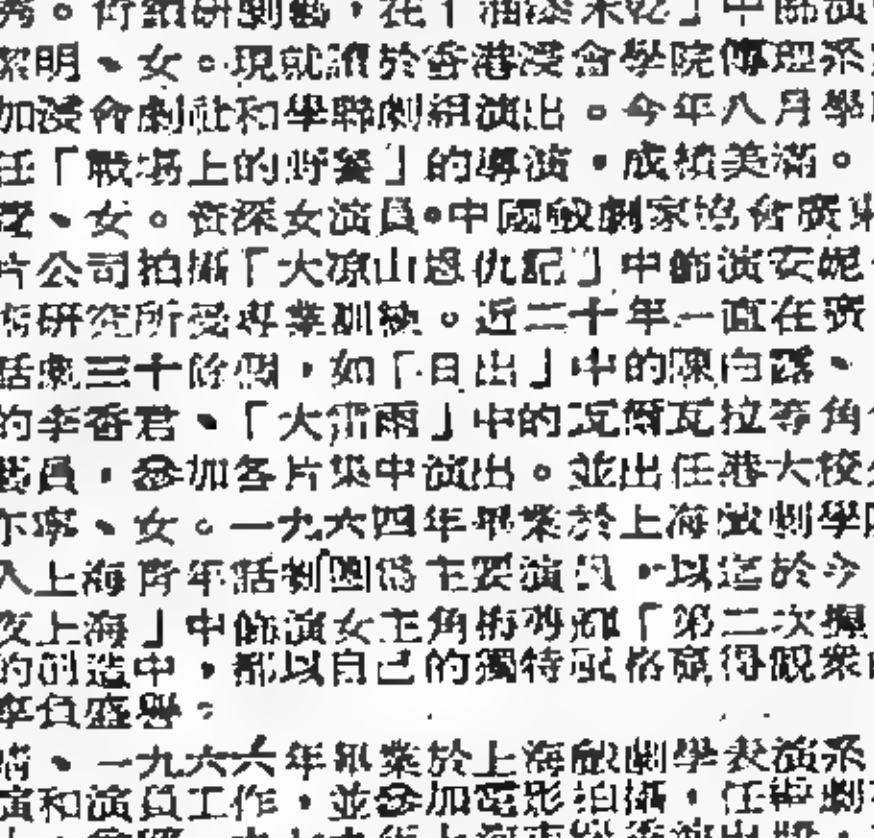 秀。曾鑽研劇藝，在「油漆未乾」中飾演
黎明、女。現就讀於香港浸會學院傳理系
加浸會劇社和學聯劇組演出。今年八月學
任「戰場上的野餐」的導演，成績美滿。
、女。資深女演員。中國戲劇家協會廣東
片公司拍攝「大凉山恩仇記」中飾演安妮
術研究所受專業訓練。近二十年一直在廣
話劇三十餘個，如「日出」中的陳白露、
的李香君、「大雷雨」中的瓦爾瓦拉等角
員，參加各片集中演出。並出任港大校
、女。一九六四年畢業於上海戲劇學
入上海青年話劇團為主要演員，以迄於今
夜上海」中飾演女主角梅 輝「第二次握
的創造中，都以自己的獨特風格贏得觀眾
享負盛譽。
、一九六六年畢業於上海戲劇學表演系
演和演員工作，並參加電影拍攝，任 劇